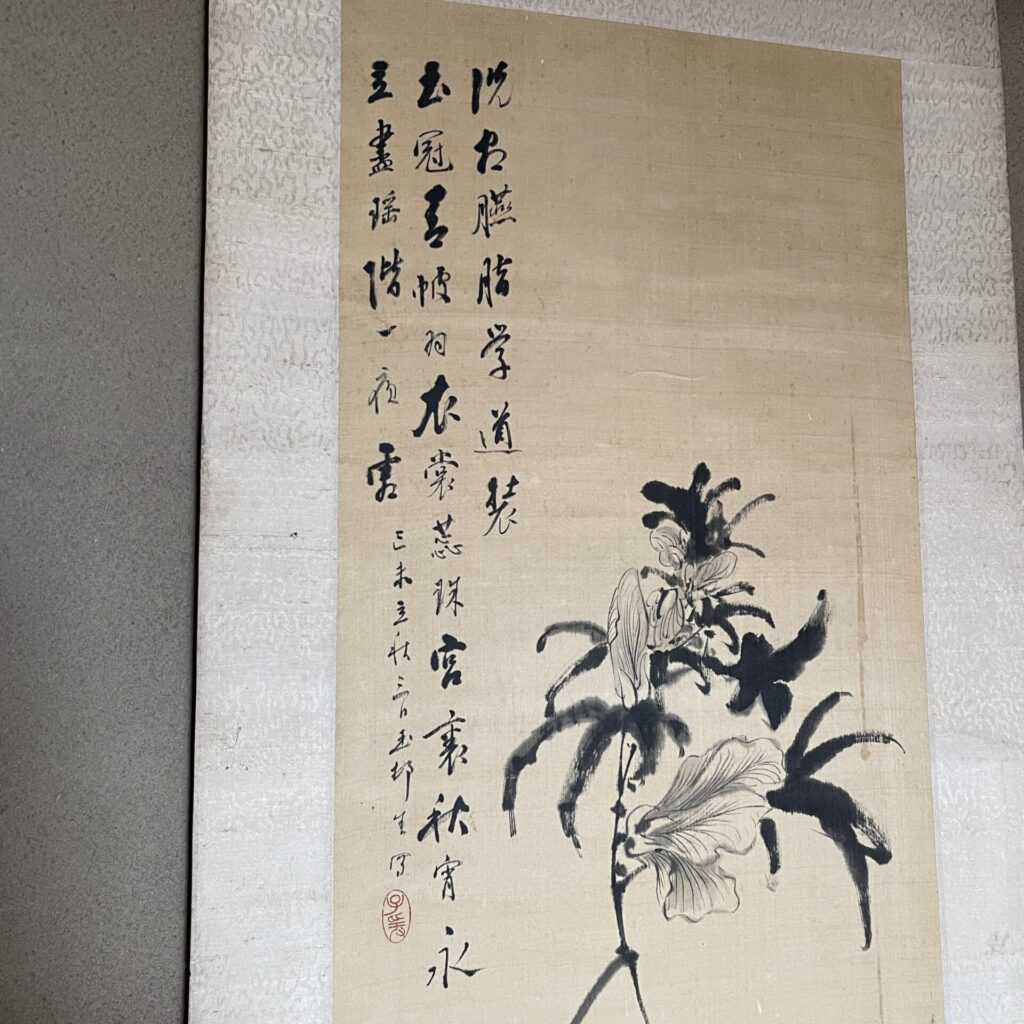 洗却臙脂学道装
玉冠青帔羽衣裳蕊珠宮裏秋宵永
立盡瑶階一夜霜
己未立秋三日玉邨生寫